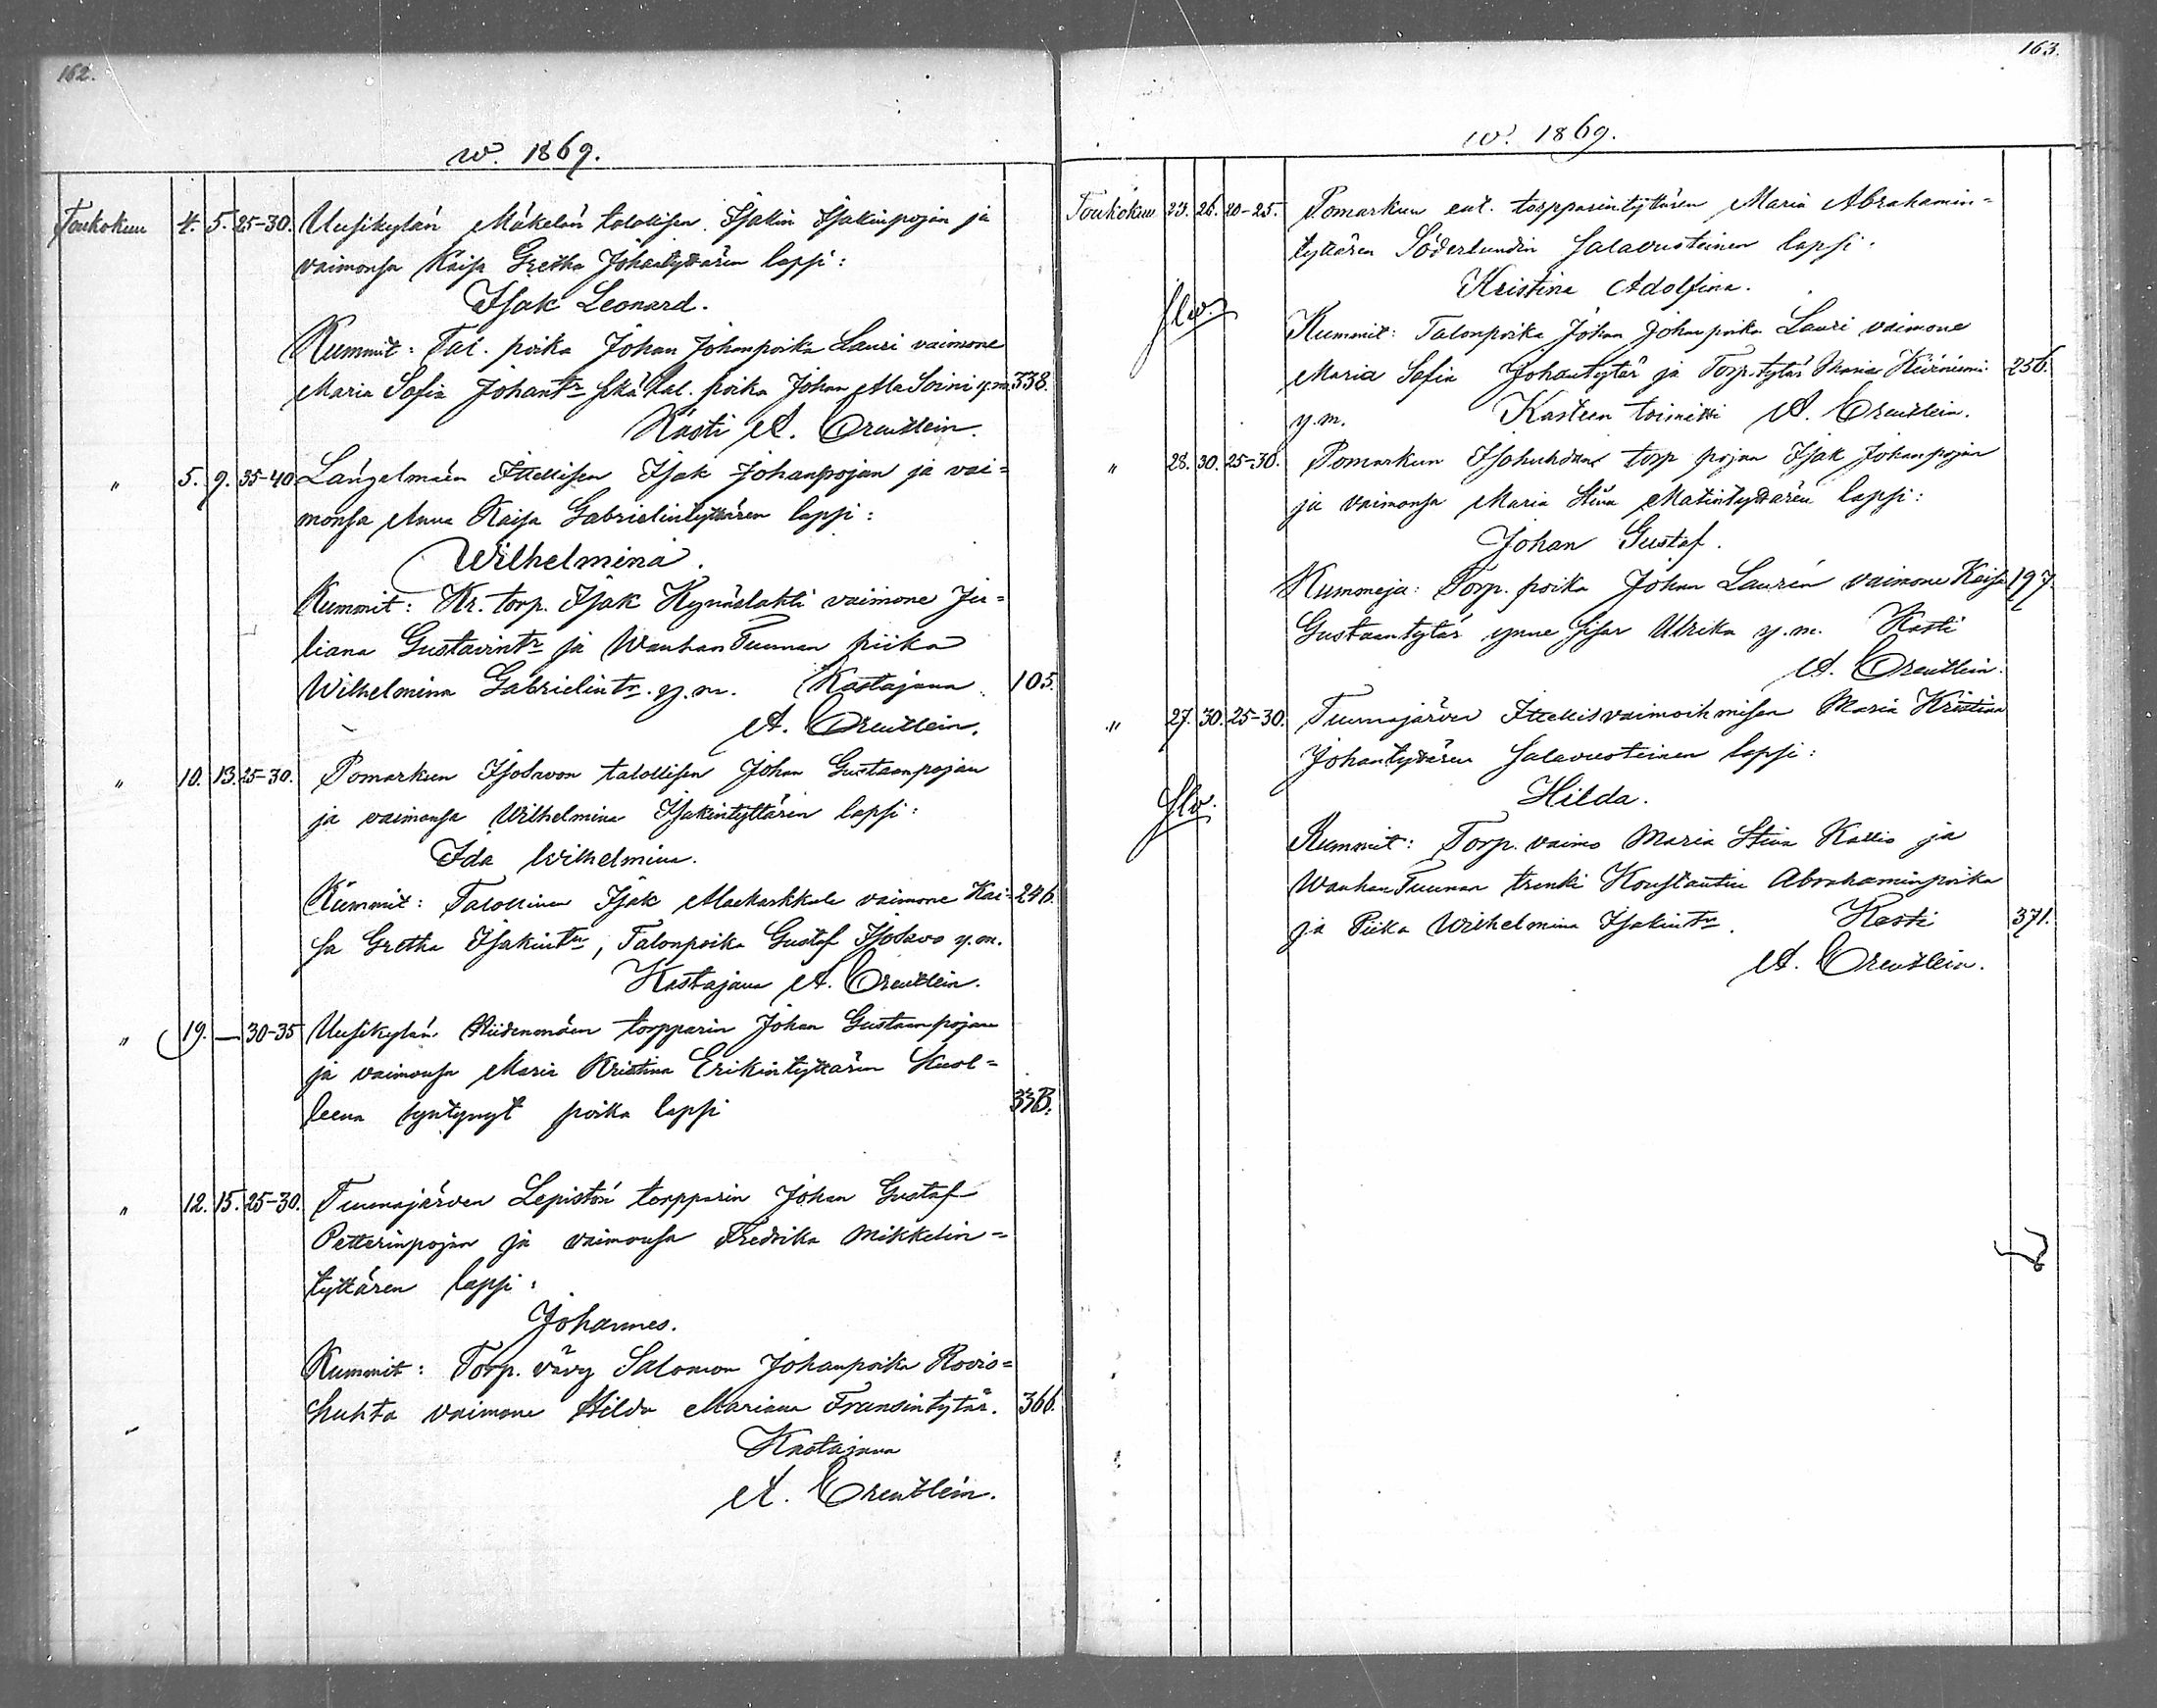 162.
w. 1869.
Toukokuu 4. 5. 25-30. Uusikylän Mäkelän talollisen Isakin Isakinpojan ja
vaimonsa Kaisa Gretha Johantyttären lapsi:
Isak Leonard.
Kummit: Tal. poika Johan Johanpoika Lauri vaimone
Maria Sofia Johantr sekä tal. poika Johan AlaSoini y.m. 338.
Kasti A. Creutlein.
" 5. 9. 35-40 Längelmäen Itellisen Isak Johanpojan ja vai=
monsa Anna Kaisa Gabrielintyttären lapsi:
Wilhelmina.
Kummit: Kr. torp. Isak Kynäslahti vaimone Ju=
liana Gustavintr ja WanhanTuunan piika
Wilhelmina Gabrielintr. y.m. Kastajana 105.
A. Creutlein.
" 10. 13. 25-30. Pomarkun Isosavon talollisen Johan Gustaanpojan
ja vaimonsa Wilhelmina Isakintyttären lapsi:
Ida Wilhelmina.
Kummit: Talollinen Isak vaimone Kai= 246.
sa Gretha Isakintr, Talonpoika Gustaf Isosavo y.m.
Kastajana A. Creutlein.
" 19. — 30-35 Uusikylän Hiidenmäen torpparin Johan Gustaanpojan
ja vaimonsa Maria Kristina Erikintyttären Kuol=
leena syntynyt poika lapsi 33B.
" 12. 15. 25-30. Tuunajärven Lepistön torpparin Johan Gustaf
Petterinpojan ja vaimonsa Fredrika Mikkelin=
tyttären lapsi:
Johannes.
Kummit: Torp. vävy Salomon Johanpoika Rovio=
huhta vaimone Hilda Mariana Fransintytär. 366.
Kastajana
A. Creutlein.
163.
w. 1869.
Toukokuu 23. 26. 20-25. Pomarkun ent. torpparintyttären Maria Abrahamin=
tyttären Söderlundin salavuoteinen lapsi:
Kristina Adolfina.
slv.
Kummit: Talonpoika Johan Johanpoika Lauri vaimone
Maria Sofia Johantytär ja Torp. tytär Maria 256.
y.m. Kasteen toimitti A. Creutlein.
" 28. 30. 25-30. Pomarkun Isohuhdan torp pojan Isak Johanpojan
ja vaimonsa Maria Stiina Matintyttären lapsi:
Johan Gustaf.
Kummeja: Torp. poika Johan Laurén vaimone Kaisa 197.
Gustaantytär ynne sisar Ulrika y.m. Kasti
A. Creutlein.
" 27. 30. 25-30. Tuunajärven Itellisvaimoihmisen Maria Kristina
Johantyttären salavuoteinen lapsi:
Hilda.
slv.
Kummit: Torp. vaimo Maria Stina Kallio ja
WanhanTuunan trenki Konstantin Abrahaminpoika
ja Piika Wilhelmina Isakintr. Kasti 371.
A. Creutlein.